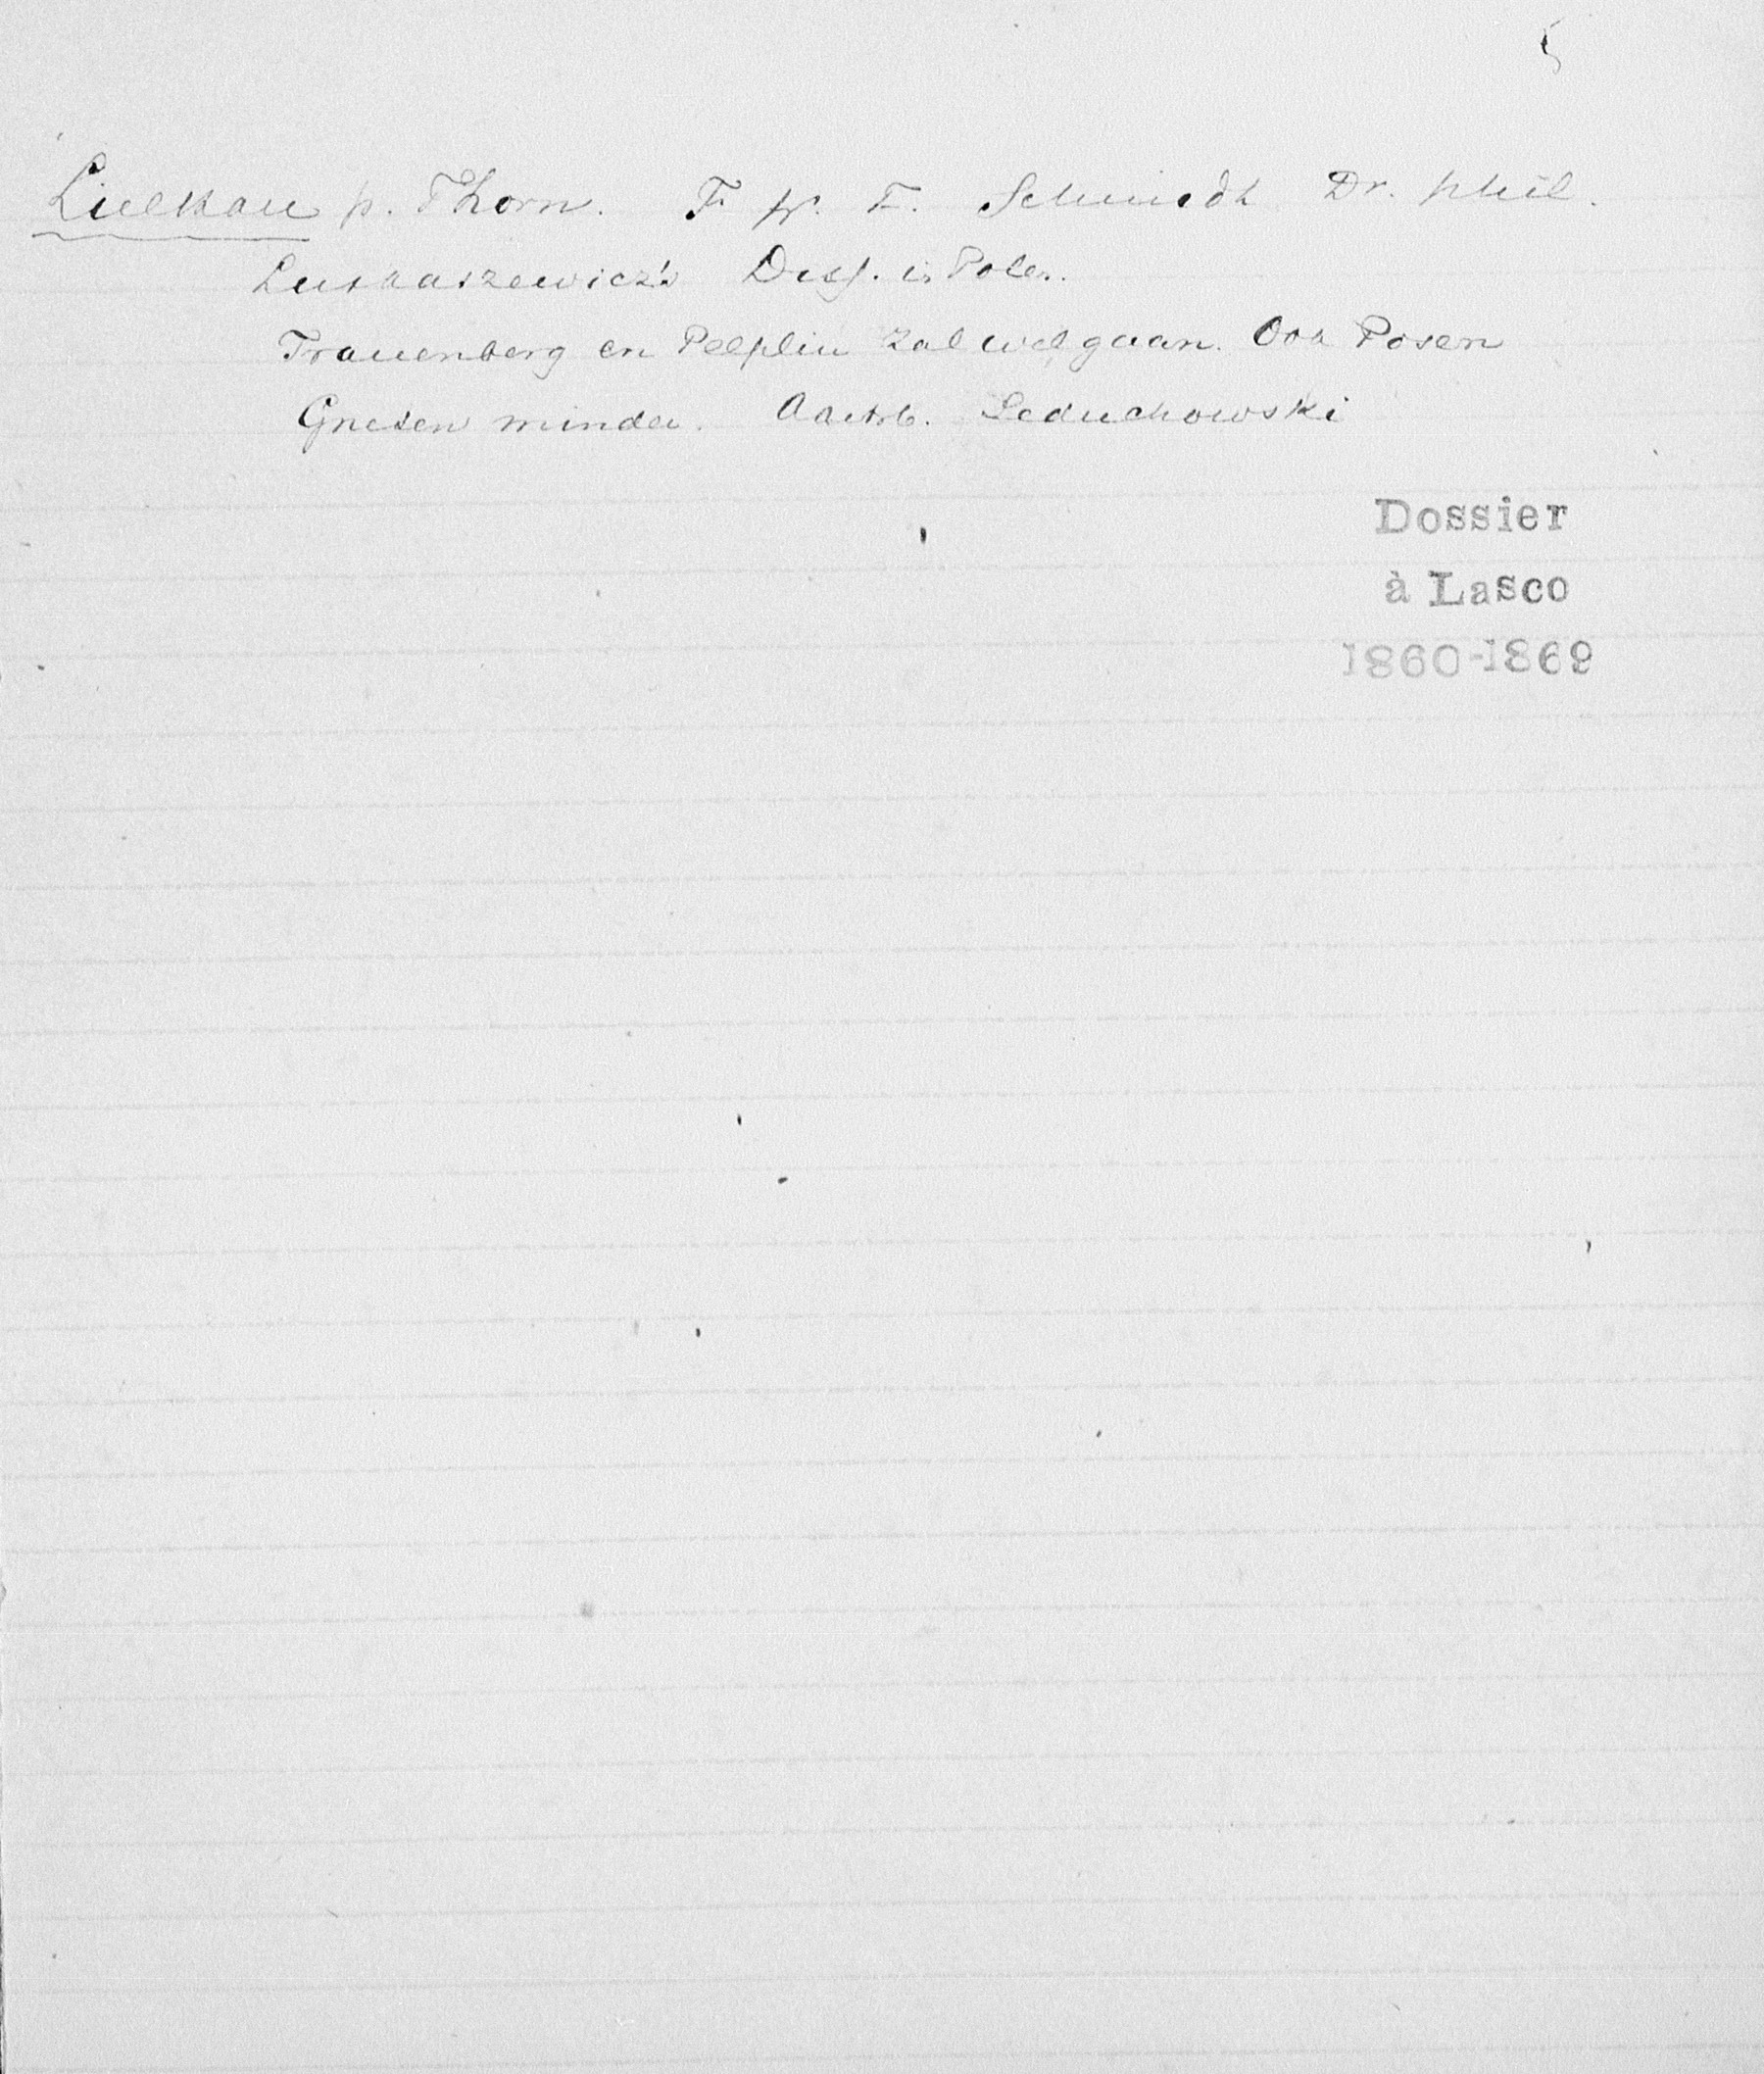 Lulkau p. Thorn. F. W. F. Schmidt Dr. phil.
Lukaszewicz's Diss. in Polen.
Frauenberg en Pelplin zal wel gaan. Ook Posen
Gnesen minder. Aartsb. Leduchowski
Dossier
à Lasco
1860-1869